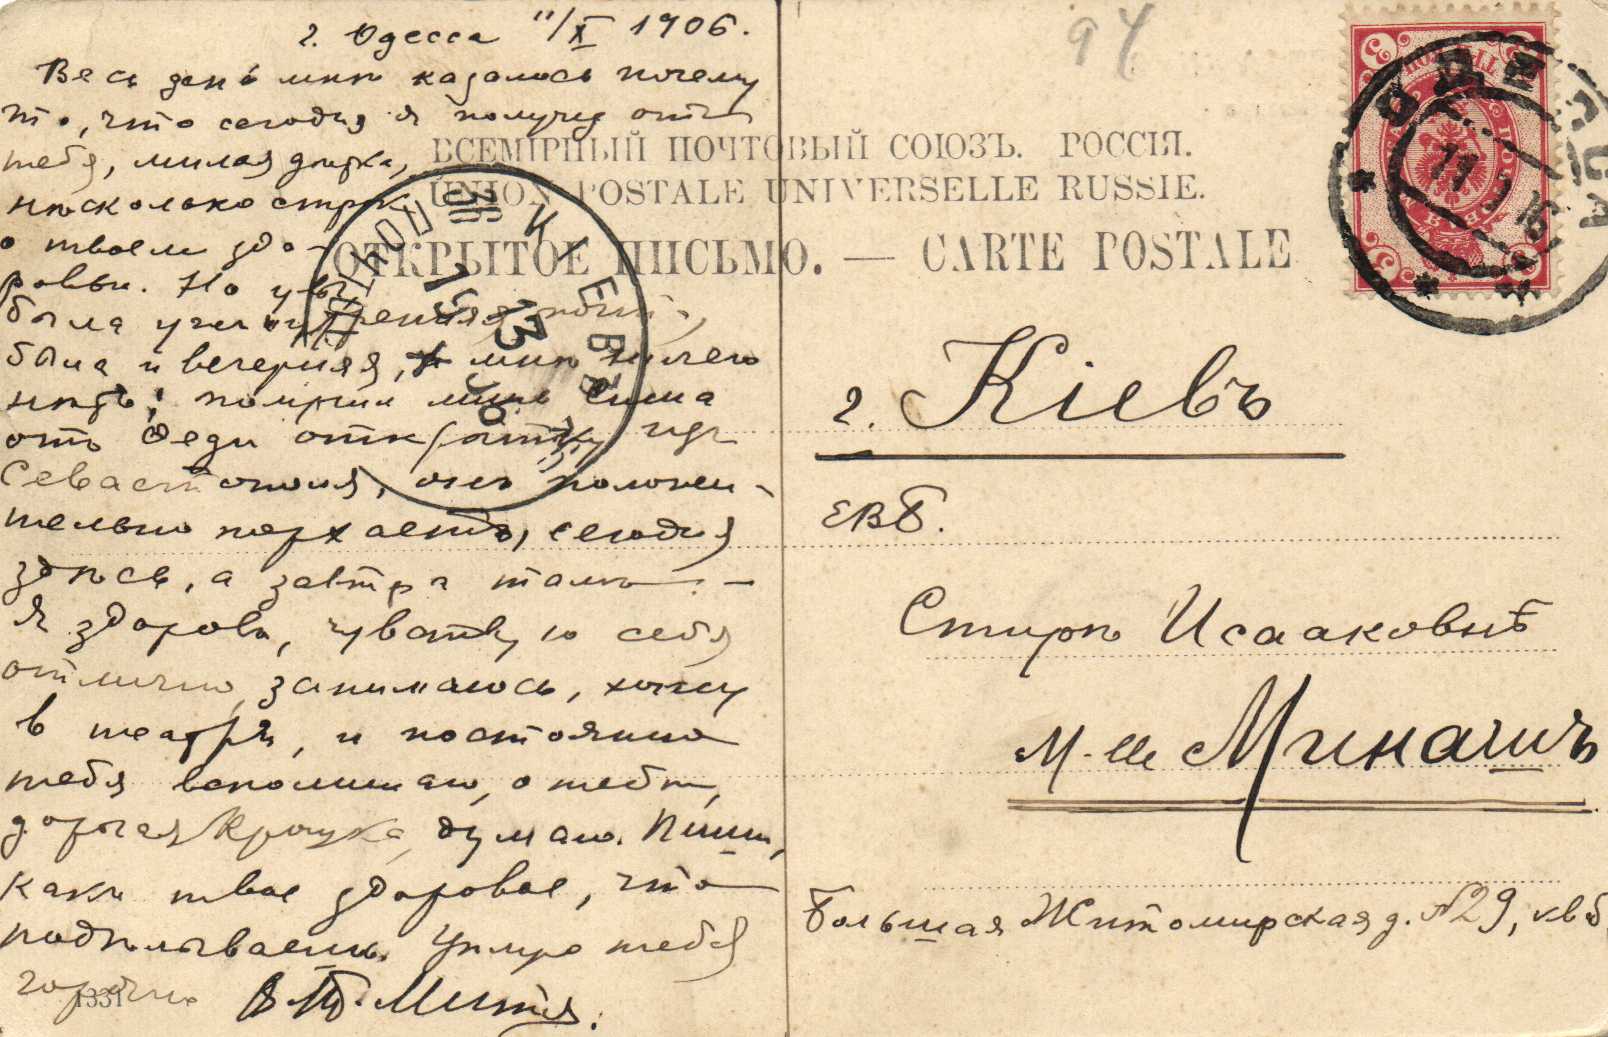 г. Одесса 11/X 1906.
Весь день мнѣ казалось почему
то, что сегодня я получу отъ
тебя, милая дѣтка,
нѣсколько строк
о твоем здо-
ровьи. Но увы
была утренняя почта,
была и вечерняя, а мнѣ ничего
нѣтъ; принесли мнѣ
отъ Феди открытку изъ
Севастополя, онъ положи-
тельно порхаетъ, сегодня
здѣсь, а завтра тамъ. —
Я здоровъ, чувствую себя
отлично, занимаюсь, хожу
в театръ, и постоянно
тебя вспоминаю, о тебѣ,
дорогая Крошка, думаю. Пиши,
какъ твое здоровье, что
подѣлываешь. Цѣлую тебя
горячо В. Т. Митя.
1331
94
ВСЕМІРНЫЙ ПОЧТОВЫЙ СОЮЗЪ. РОССІЯ.
UNION POSTALE UNIVERSELLE RUSSIE.
ОТКРЫТОЕ ПИСЬМО. — CARTE POSTALE
КІЕВЪ
13
ОДЕССА
11
г. Кіевъ
ЕВБ.
Исааковнѣ
М-lle Минашъ
Большая Житомирская д. №29, кв 6